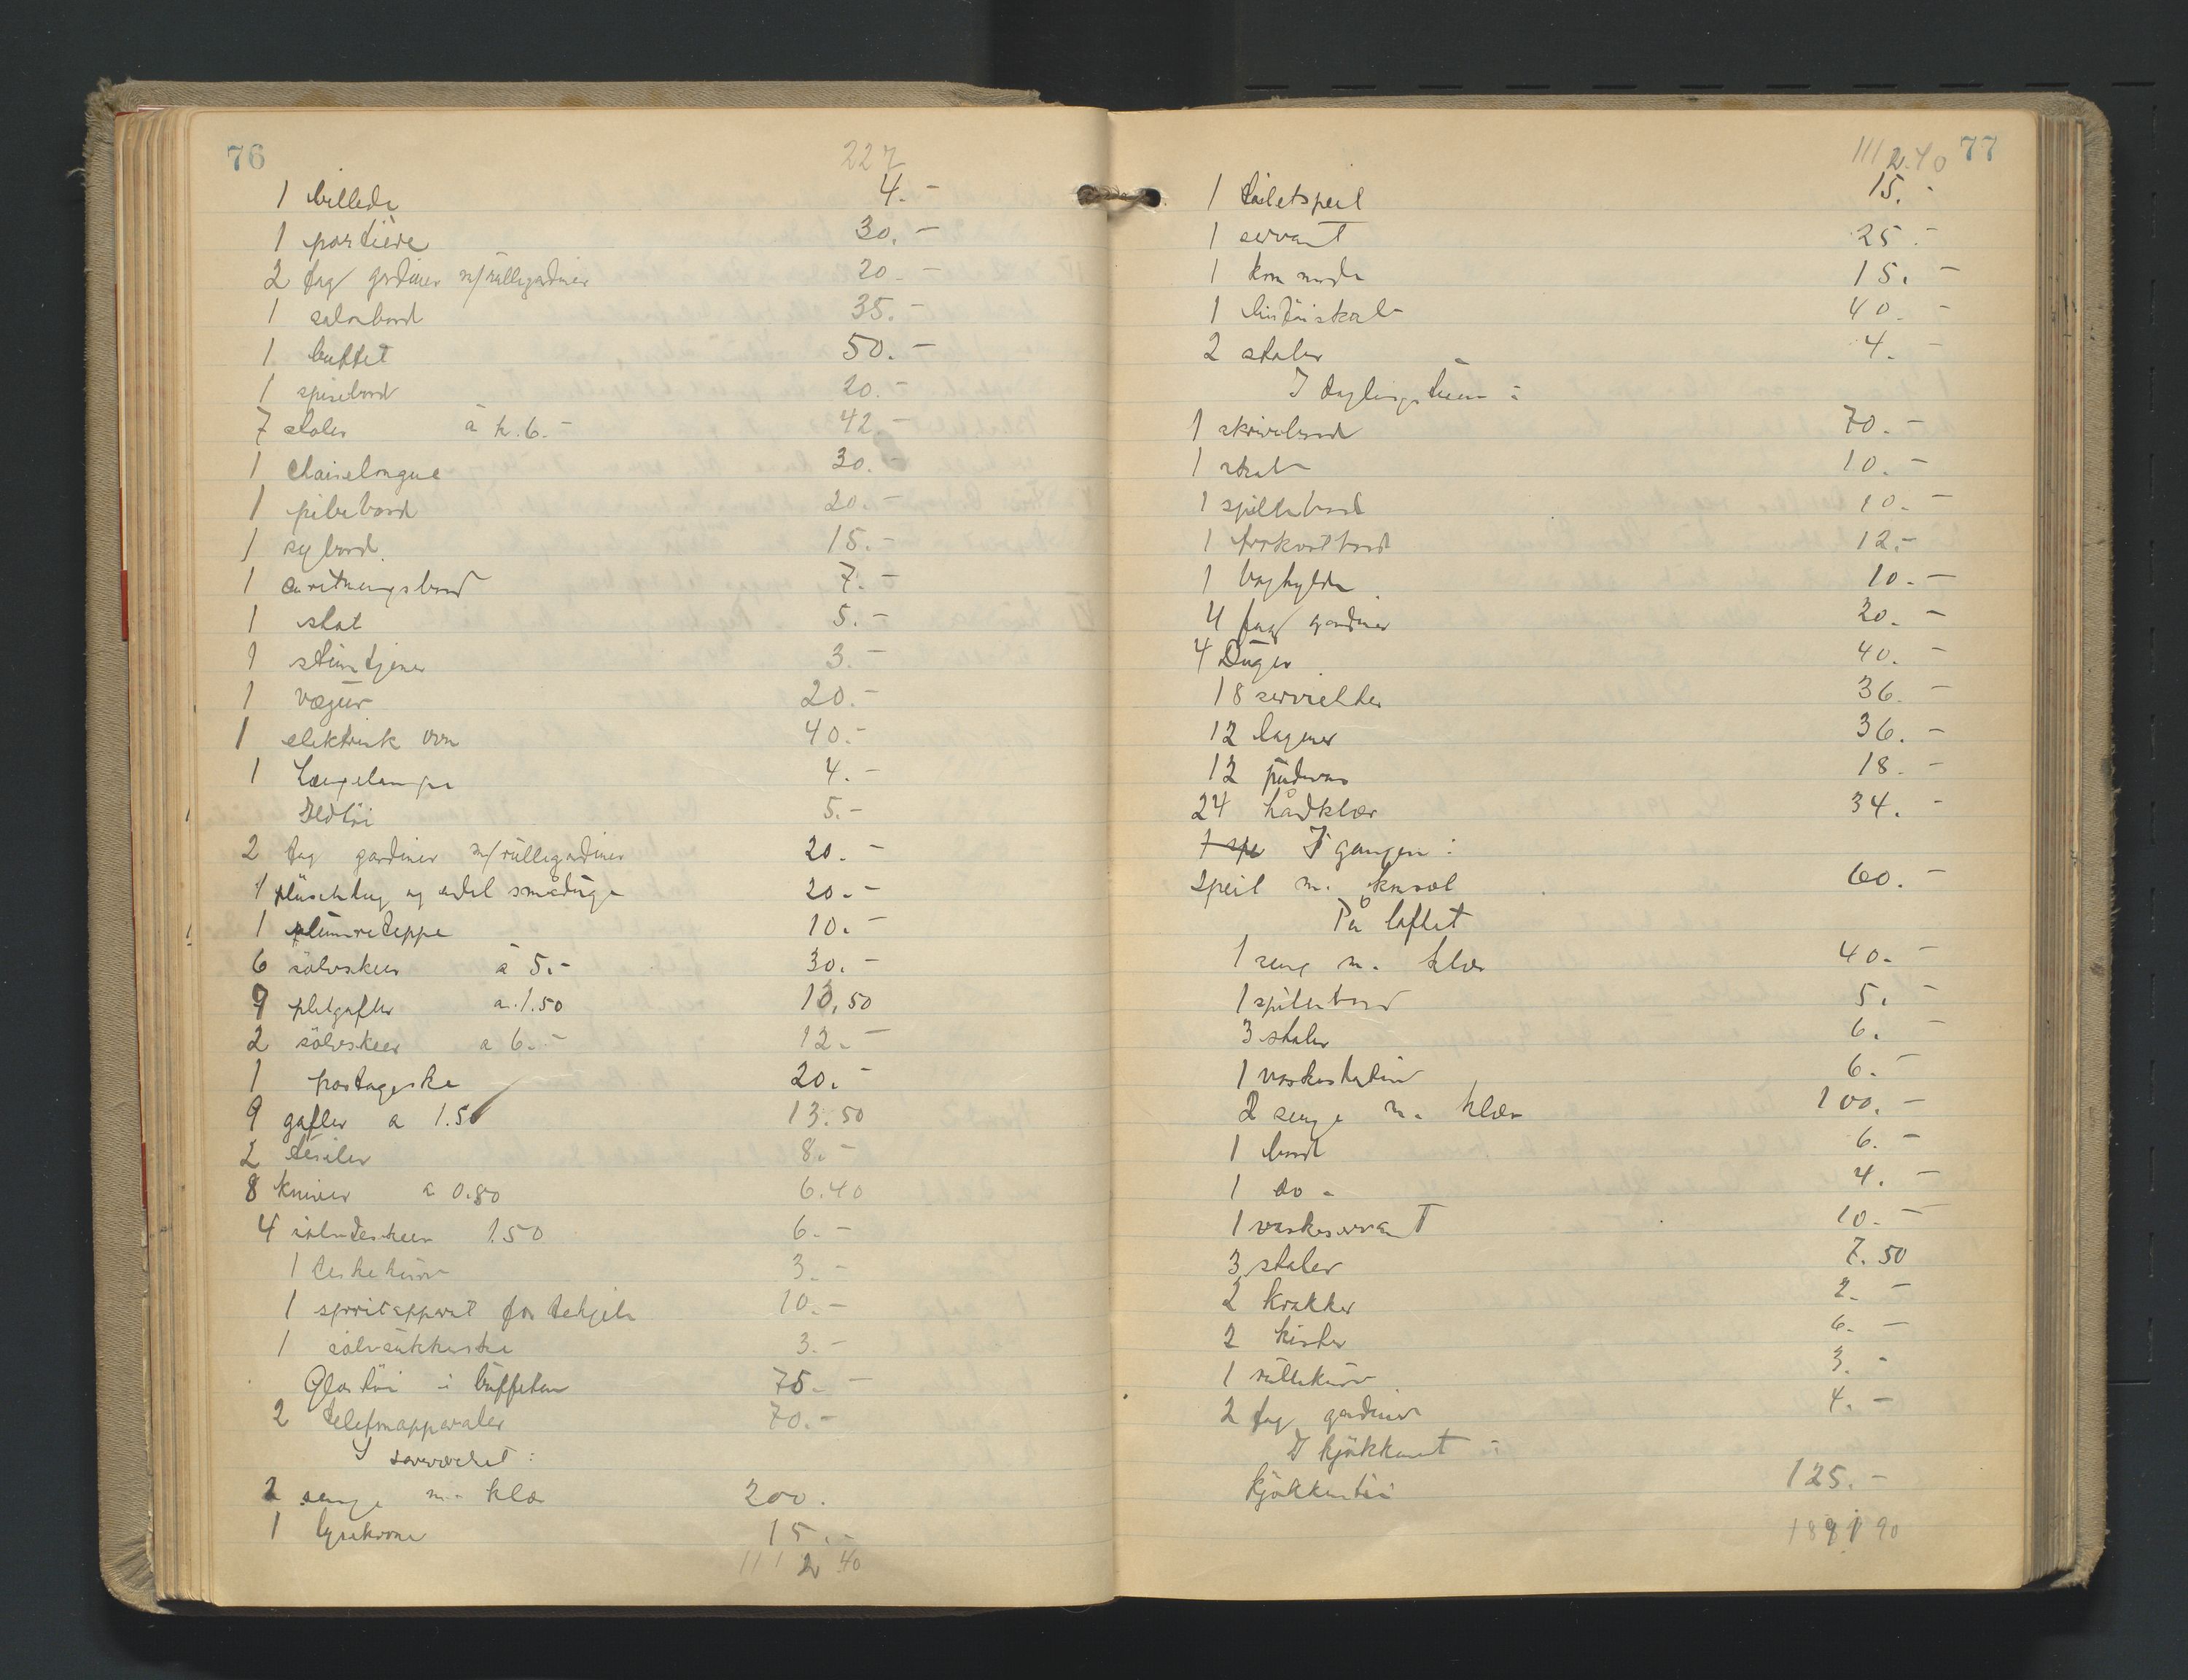 76
227
1 billede 4.-
1 portiere 30.-
2 fag gardiner m/rullegardiner 20.-
1 salonbord 35.-
1 buffet 50.-
1 spisebord 20.-
7 stoler à kr. 6.- 42.-
1 chaiselongue 30.-
1 pibebord 20.-
1 sybord 15.-
1 anretningsbord 7.-
1 stol 5.-
1 stumtjener 3.-
1 vægur 20.-
1 elektrisk ovn 40.-
1 Længelampe 4.-
Ildtöi 5.-
2 fag gardiner m/rullegardiner 20.-
1 plüschdug og endel smaaduge 20.-
1 plümreteppe 10.-
6 sölvskeer à 5.- 30.-
9 pletgafler a. 1.50 13,50
2 sölvskeer a 6.- 12.-
1 potageske 20.-
9 gafler a 1.50 13.50
2 tesiler 8.-
8 kniver a 0.80 6.40
4 sölvteskeer 1.50 6.-
1 teskekurv 3.-
1 spritapparat for tekjele 10.-
1 sölvsukkerske 3.-
Glastöi i buffeten 75.-
2 telefonapparater 70.-
I soveværelset:
2 senge m. klær 200.
1 lysekrone 15.-
1112 40
77
1112.40
1 toiletspeil 15.-
1 servant 25.-
1 kommode 15.-
1 lintöiskab 40.-
2 stoler 4.-
I dagligstuen:
1 skrivebord 70.-
1 skab 10.-
1 spillebord 10.-
1 frokostbord 12.-
1 boghylde 10.-
4 fag gardiner 20.-
4 Duger 40.-
18 servietter 36.-
12 lagener 36.-
12 pudevar 18.-
24 håndklær 34.-
1 spe I gangen:
speil m. konsol 60.-
På loftet
1 seng m. klær 40.-
1 spillebord 5.-
3 stoler 6.-
1 vaskestativ 6.-
2 senge m. klær 100.-
1 bord 6.-
1 do - 4.-
1 vaskeservant 10.-
3 stoler 7.50
2 krakker 2.-
2 kister 6.-
1 rullekurv 3.-
2 fag gardiner 4.-
I kjökkenet:
Kjökkentöi 125.-
1891 90